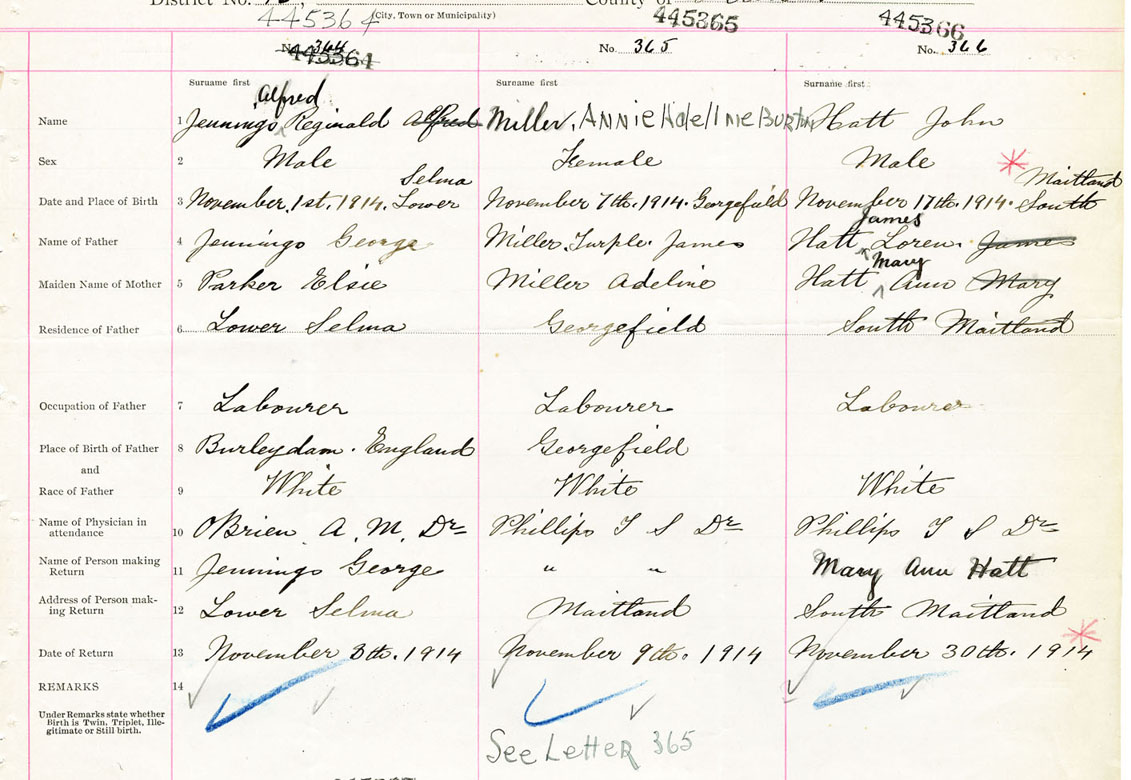 District No.
County of
(City, Town or Municipality)
445364
445365
445366
No. 364
445364
No. 365
No. 366
Surname first
Surname first
Surname first
Alfred
Name 1 Jennings Reginald Alfred Miller, Annie Adeline Burton Hatt John
Sex 2 Male Female Male
Selma
Maitland
Date and Place of Birth 3 November 1st. 1914. Lower November 7th. 1914. Georgefield November 17th. 1914. South
James
Name of Father 4 Jennings George Miller Turple James Hatt Loren James
Mary
Maiden Name of Mother 5 Parker Elsie Miller Adeline Hatt Ann Mary
Residence of Father 6 Lower Selma Georgefield South Maitland
Occupation of Father 7 Labourer Labourer Labourer
Place of Birth of Father 8 Burleydam. England Georgefield
and
Race of Father 9 White White White
Name of Physician in
attendance 10 O'Brien A. M. Dr Phillips T S Dr Phillips T S Dr
Name of Person making
Return 11 Jennings George " " Mary Ann Hatt
Address of Person mak-
ing Return 12 Lower Selma Maitland South Maitland
Date of Return 13 November 8th. 1914 November 9th. 1914 November 30th. 1914
REMARKS 14
Under Remarks state whether
Birth is Twin, Triplet, Ille-
gitimate or Still birth.
See Letter 365